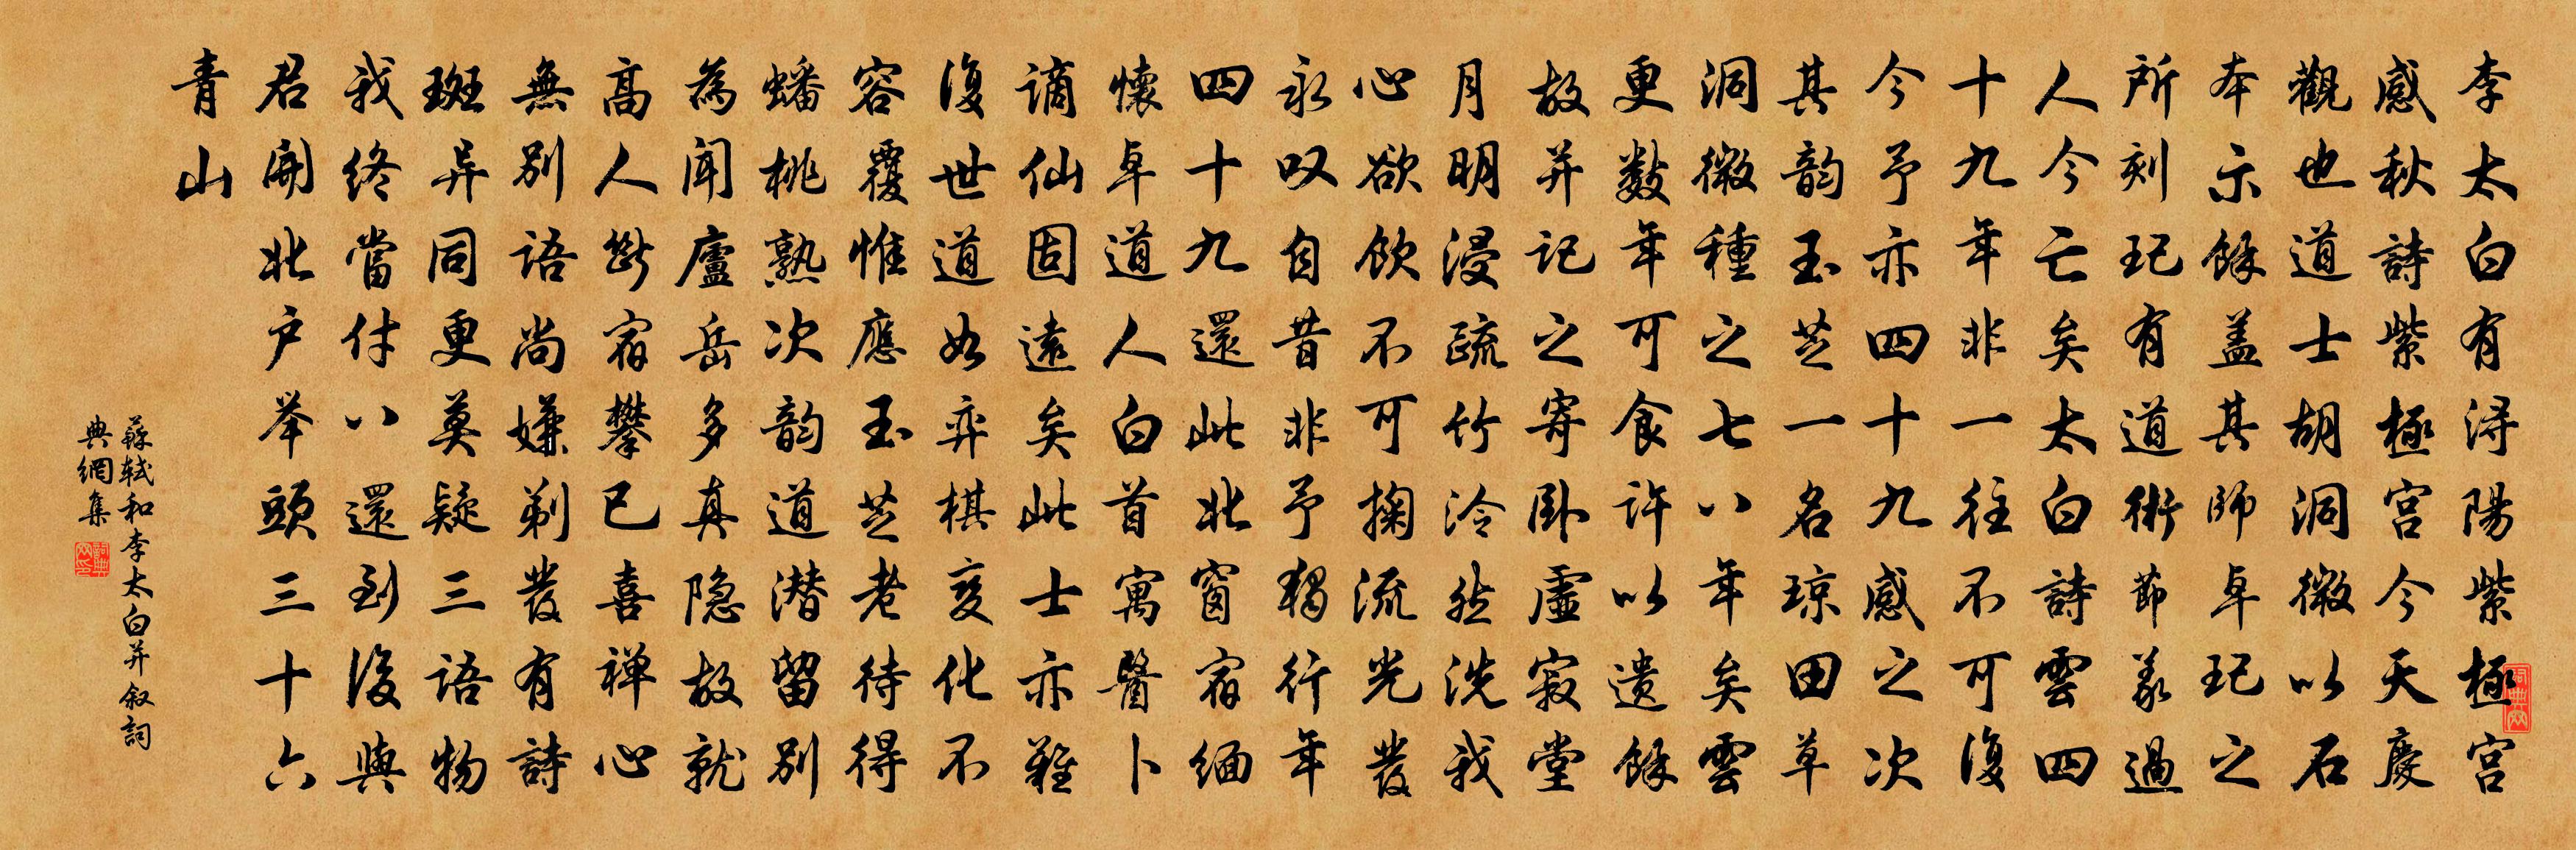 李太白有浔陽紫極宮
感秋詩紫極宮今天慶
觀也道士胡洞微以石
本示餘盖其師卓玘之
所刻玘有道術節義過
人今亡矣太白詩雲四
十九年非一往不可復
今予亦四十九感之次
其韵玉芝一名琼田草
洞微種之七八年矣雲
更數年可食許以遗餘
故并記之寄卧虛寂堂
月明浸疏竹泠然洗我
心欲飲不可掬流光發
永叹自昔非予獨行年
四十九還此北窗宿缅
懷卓道人白首寓醫卜
谪仙固遠矣此士亦難
復世道如弈棋变化不
容覆惟應玉芝老待得
蟠桃熟次韵道潜留别
為聞廬岳多真隐故就
高人斷宿攀已喜禅心
無别語尚嫌剃發有詩
斑异同更莫疑三語物
我終當付八還到後與
君開北户举頭三十六
青山
蘇轼和李太白并叙詞
典網集